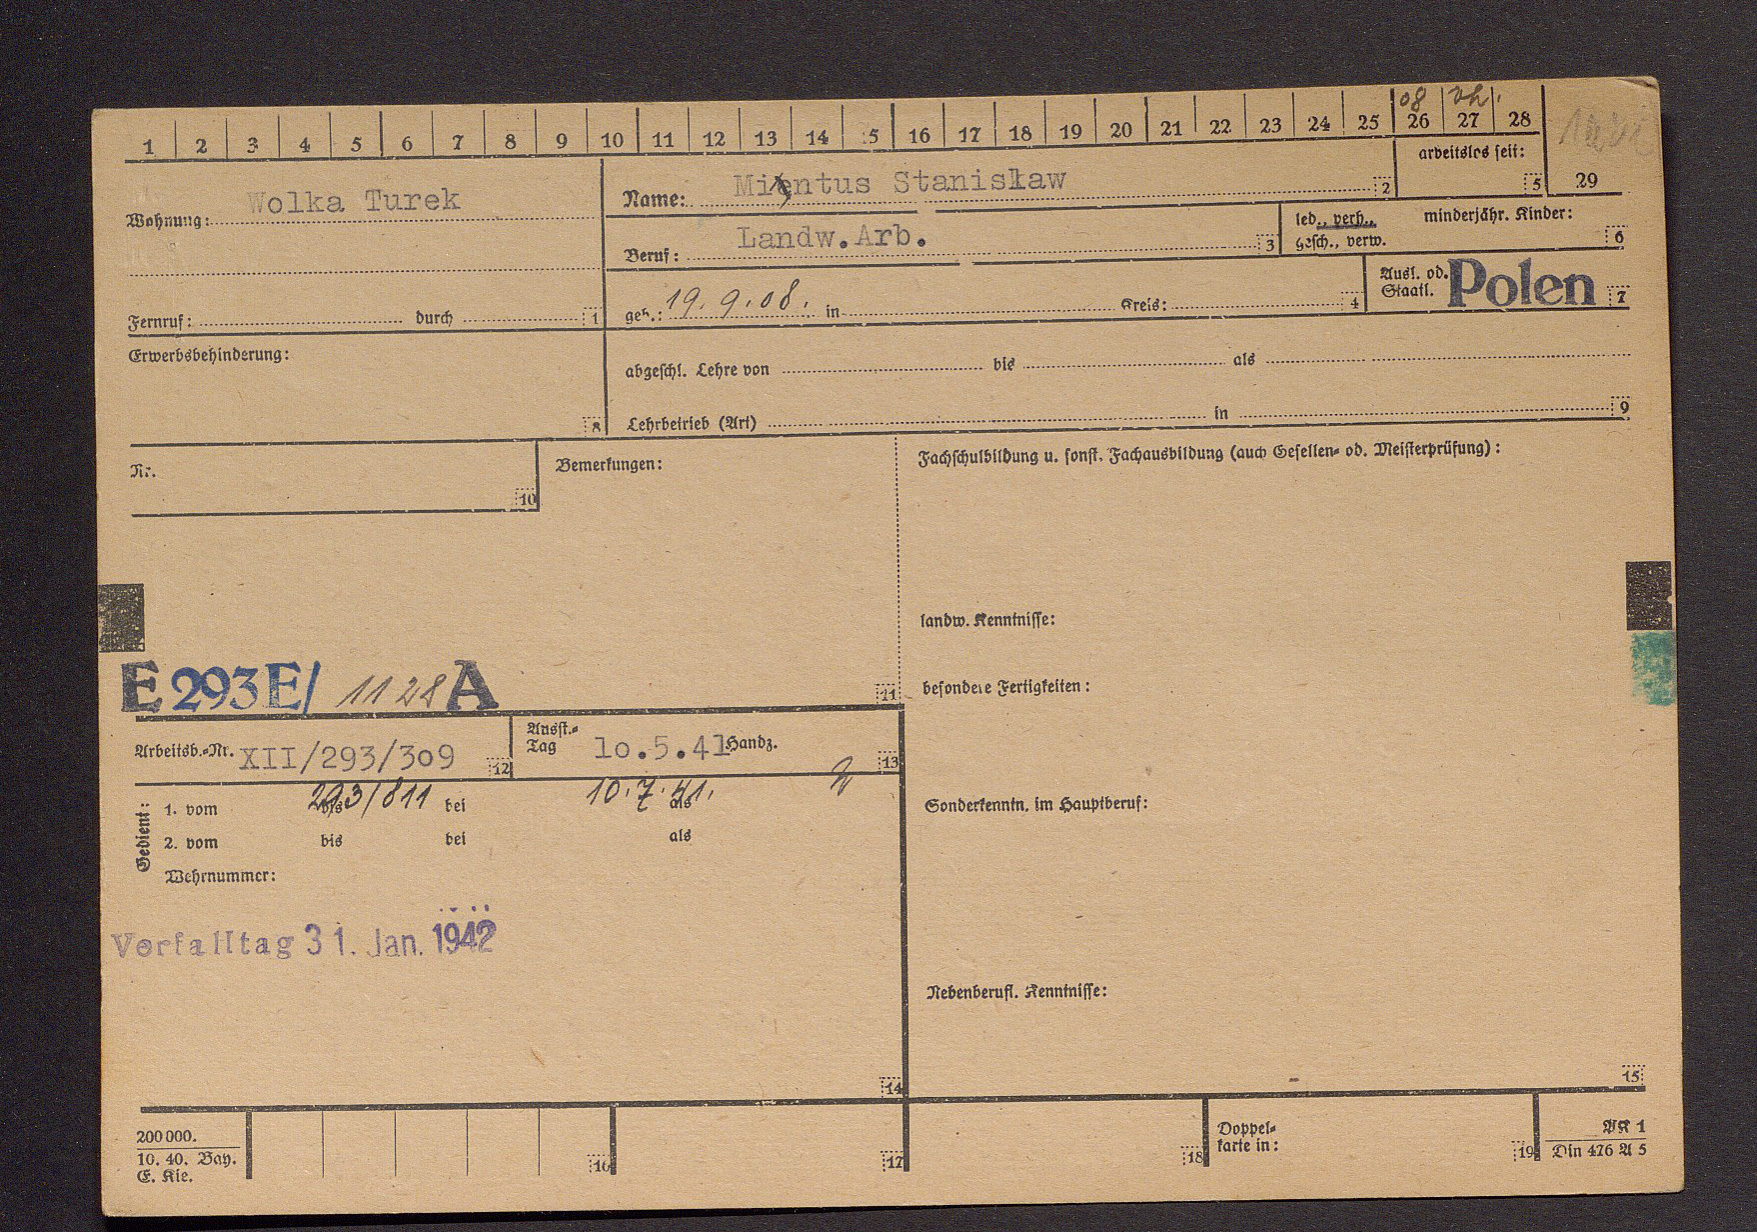 08 vh.
1 2 3 4 5 6 7 8 9 10 11 12 13 14 15 16 17 18 19 20 21 22 23 24 25 26 27 28 29
arbeitslos seit: 5
Wohnung: Wolka Turek
Name: Mientus Stanisław 2
Beruf: Landw.Arb. 3
led., verh., minderjähr. Kinder:
gesch., verw. 6
Fernruf: durch 1
geb.: 19.9.08. in Kreis: 4
Ausl. od.
Staatl. Polen 7
Erwerbsbehinderung: 8
abgeschl. Lehre von bis als
Lehrbetrieb (Art) in 9
Nr. 10
Bemerkungen:
Fachschulbildung u. sonst. Fachausbildung (auch Gesellen- od. Meisterprüfung):
landw. Kenntnisse:
E 293 E/ 1128 A 11
besondere Fertigkeiten:
Arbeitsb.-Nr. XII/293/309 12
Ausst.-
Tag 10.5.41 Handz. 13
Gedient:
1. vom bis 293/811 bei 10.7.41. als
2. vom bis bei als
Wehrnummer:
Sonderkenntn. im Hauptberuf:
Verfalltag 31. Jan. 1942
Nebenberufl. Kenntnisse:
14 15
200000.
10. 40. Bay.
E. Kie.
16 17 18
Doppel-
karte in: 19
AK 1
Din 476 A 5